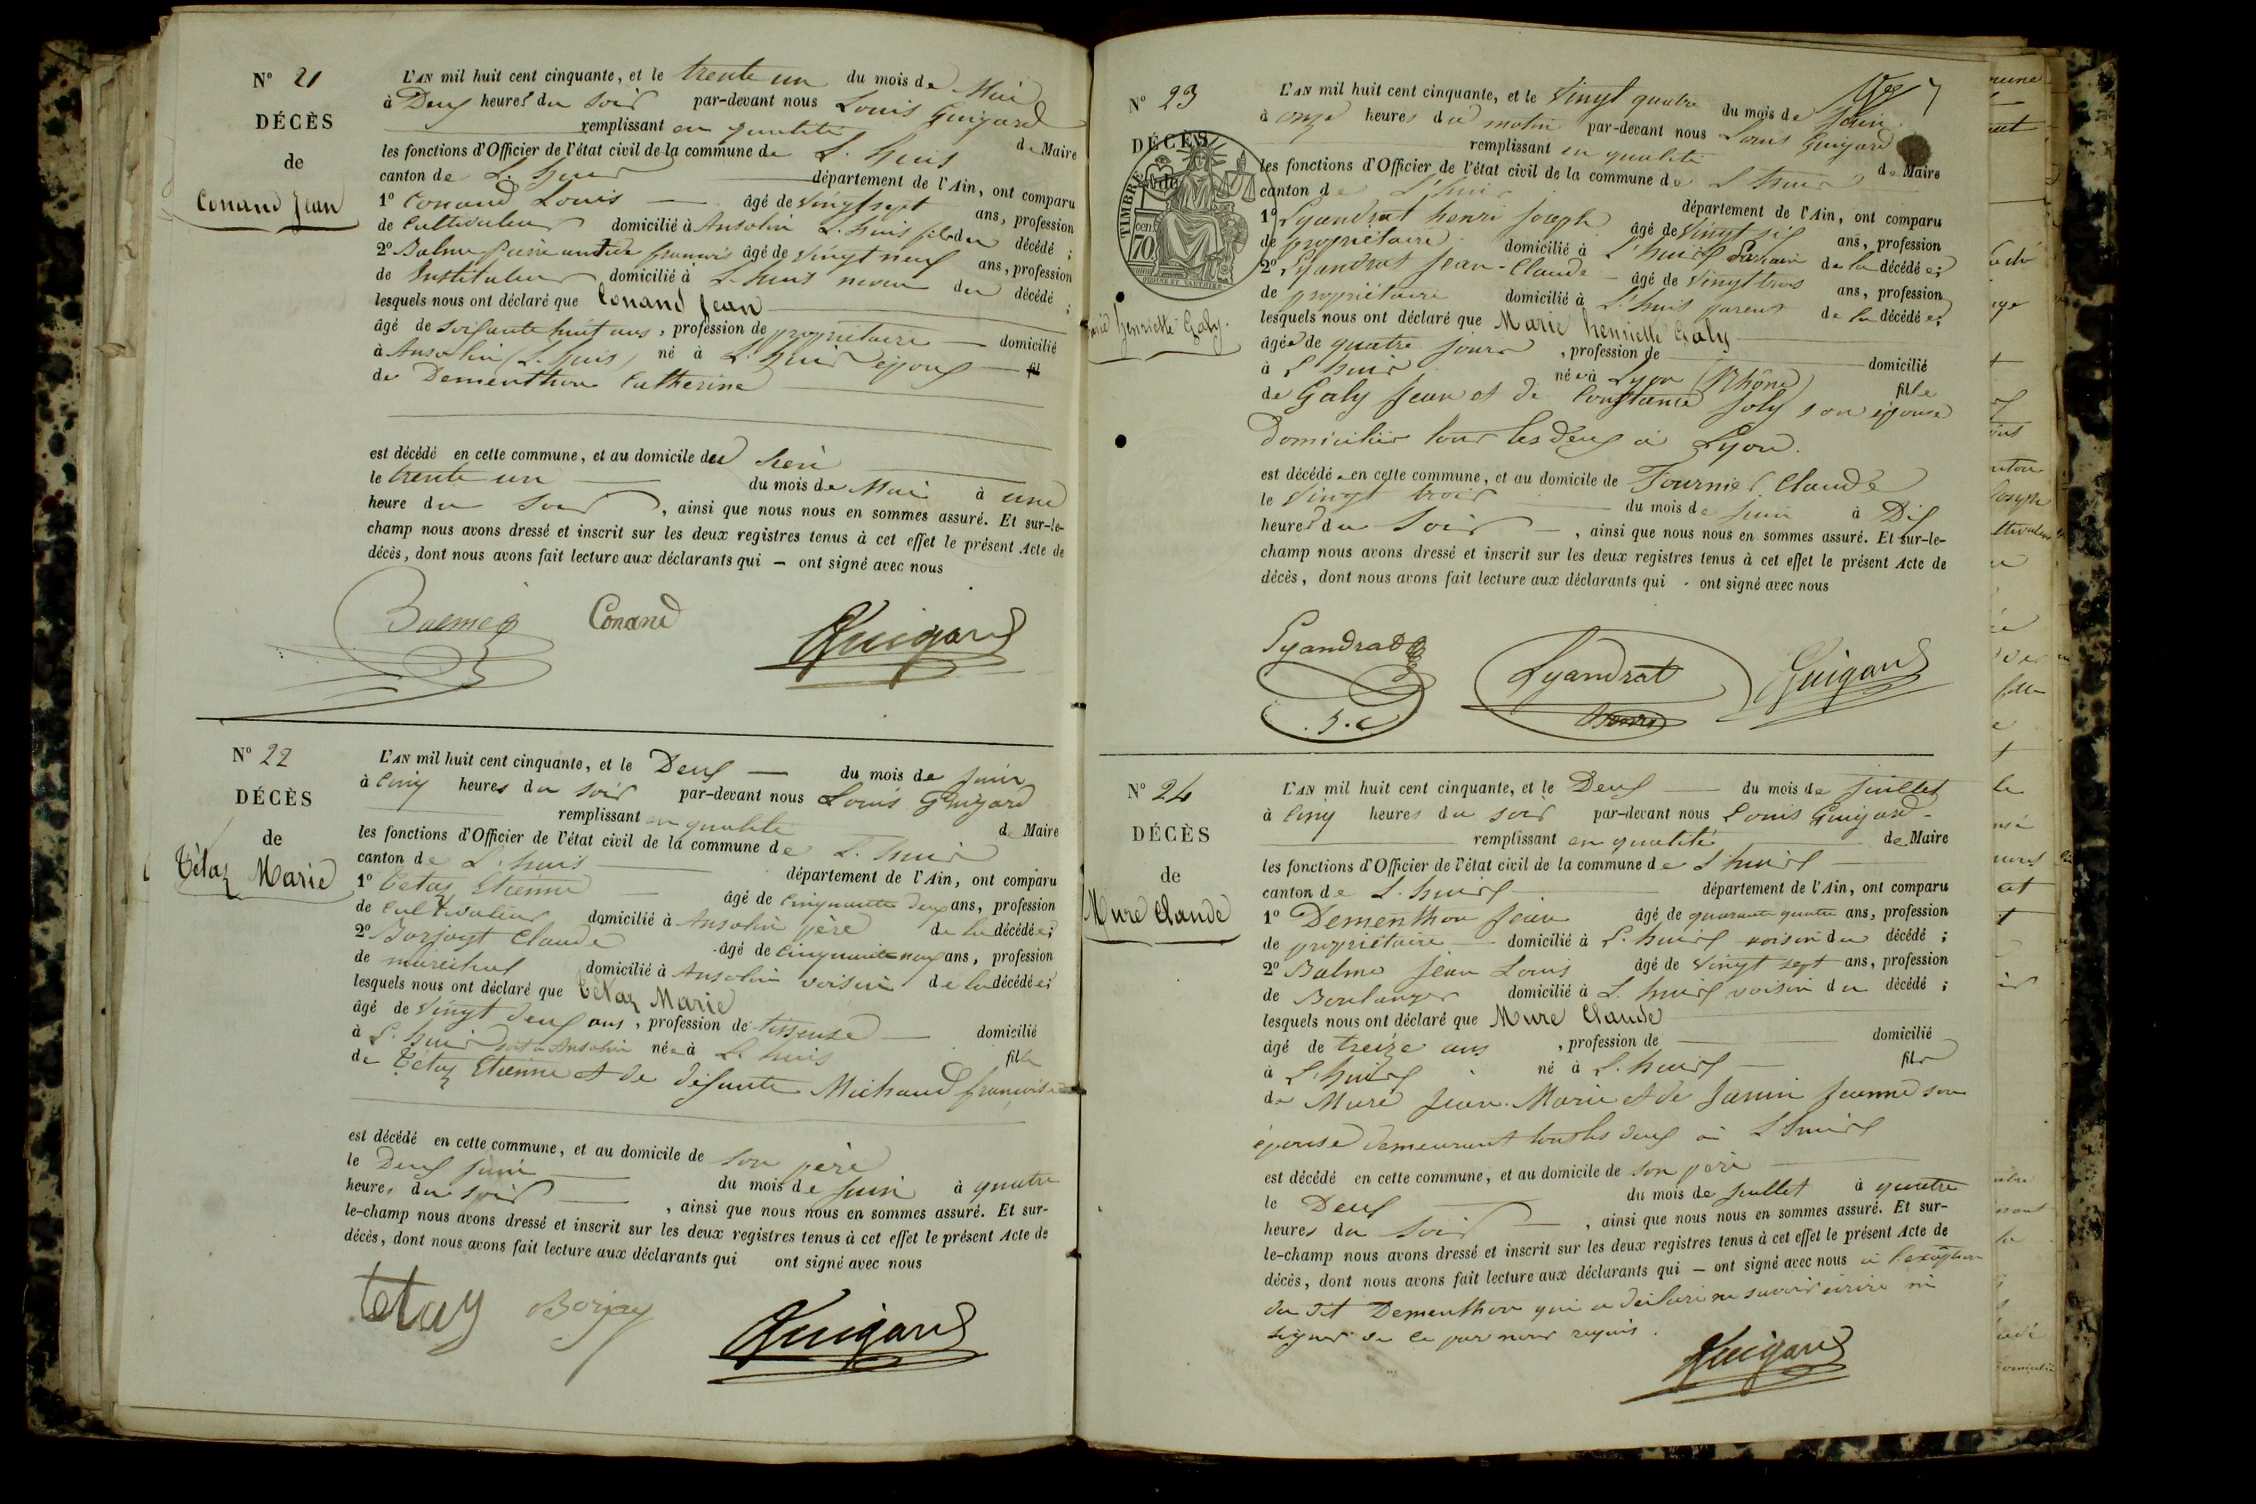 N° 21
DÉCÈS
de
Conand Jean
L'AN mil huit cent cinquante, et le trente un du mois de Mai
à Deux heures du soir par-devant nous Louis Guigard
remplissant en qualité de Maire
les fonctions d'Officier de l'état civil de la commune de L. huis
canton de L. huis département de l'Ain, ont comparu
1° Conand Louis — âgé de vingt sept ans, profession
de Cultivateur domicilié à Ansolin L. huis fils du décédé ;
2° Balme françois âgé de vingt neuf ans, profession
de Instituteur domicilié à L. huis neveu du décédé ;
lesquels nous ont déclaré que Conand Jean
âgé de soixante huit ans, profession de propriétaire — domicilié
à Ansolin (L. huis) né à L. huis époux — fil
de Dementhon Catherine
est décédé en cette commune, et au domicile de
le trente un du mois de Mai à une
heure du soir, ainsi que nous nous en sommes assuré. Et sur-le-
champ nous avons dressé et inscrit sur les deux registres tenus à cet effet le présent Acte de
décès, dont nous avons fait lecture aux déclarants qui — ont signé avec nous
Balme Conand Guigard
N° 22
DÉCÈS
de
Tétaz Marie
L'AN mil huit cent cinquante, et le Deux — du mois de Juin
à Cinq heures du soir par-devant nous Louis Guigard
remplissant en qualité de Maire
les fonctions d'Officier de l'état civil de la commune de L. huis
canton de L. huis département de l'Ain, ont comparu
1° Tétaz Etienne — âgé de Cinquante deux ans, profession
de Cultivateur domicilié à Ansolin père de la décédée ;
2° Borjayt Claude âgé de cinquante neuf ans, profession
de marechal domicilié à Ansolin voisin de la décédée ;
lesquels nous ont déclaré que Tétaz Marie
âgé de vingt deux ans, profession de tisseuse — domicilié
à L. huis soit à Ansolin née à L. huis fille
de Tétaz Etienne et de defunte Michaud françoise
est décédé en cette commune, et au domicile de son père
le Deux juin du mois de Juin à quatre
heures du soir —, ainsi que nous nous en sommes assuré. Et sur-
le-champ nous avons dressé et inscrit sur les deux registres tenus à cet effet le présent Acte de
décès, dont nous avons fait lecture aux déclarants qui ont signé avec nous
tetaz Borjay Guigard
N° 23
DÉCÈS
de
TIMBRE
cen. 70
Marie henriette Galy.
L'AN mil huit cent cinquante, et le Vingt quatre du mois de Juin
à onze heures du matin par-devant nous Louis Guigard
remplissant en qualité de Maire
les fonctions d'Officier de l'état civil de la commune de L'huis
canton de L'huis département de l'Ain, ont comparu
1° Lyandrat henri joseph âgé de Vingt six ans, profession
de propriétaire domicilié à L'huis de la décédée ;
2° Lyandrat Jean-Claude — âgé de Vingt trois ans, profession
de propriétaire domicilié à L'huis parent de la décédée ;
lesquels nous ont déclaré que Marie henriette Galy
âgée de quatre jours, profession de — domicilié
à L'huis née à Lyon (Rhône) fille
de Galy Jean et de Constance Joly son épouse
Domiciliés tous les deux à Lyon.
est décédée en cette commune, et au domicile de Fournier Claude
le Vingt trois du mois de juin à Dix
heures du Soir —, ainsi que nous nous en sommes assuré. Et sur-le-
champ nous avons dressé et inscrit sur les deux registres tenus à cet effet le présent Acte de
décès, dont nous avons fait lecture aux déclarants qui - ont signé avec nous
Lyandrat Lyandrat Guigard
J. C Henri
N° 24
DÉCÈS
de
Mure Claude
L'AN mil huit cent cinquante, et le Deux — du mois de juillet
à Cinq heures du soir par-devant nous Louis Guigard
remplissant en qualité de Maire
les fonctions d'Officier de l'état civil de la commune de L'huis
canton de L. huis département de l'Ain, ont comparu
1° Dementhon Jean âgé de quarante quatre ans, profession
de propriétaire — domicilié à L. huis voisin du décédé ;
2° Balme Jean Louis âgé de vingt sept ans, profession
de Boulanger domicilié à L. huis voisin du décédé ;
lesquels nous ont déclaré que Mure Claude
âgé de treize ans, profession de — domicilié
à L. huis né à L. huis — fils
de Mure Jean-Marie et de Janin Jeanne son
épouse demeurant tous les deux à L'huis
est décédé en cette commune, et au domicile de son père
le Deux du mois de juillet à quatre
heures du Soir —, ainsi que nous nous en sommes assuré. Et sur-
le-champ nous avons dressé et inscrit sur les deux registres tenus à cet effet le présent Acte de
décès, dont nous avons fait lecture aux déclarants qui — ont signé avec nous à l'exception
du dit Dementhon qui a déclaré ne savoir écrire ni
signer de ce par nous requis.
Guigard